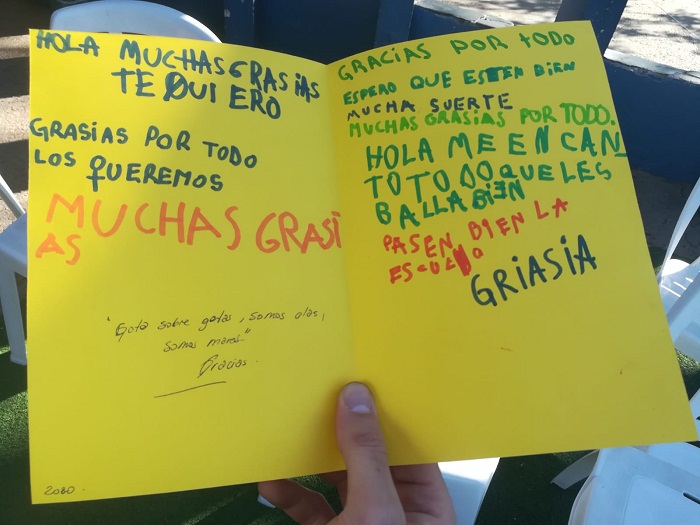 HOLA MUCHAS GRASIAS
TE QUIERO
GRASIAS POR TODO
LOS QUEREMOS
MUCHAS GRASI
AS
"Gota sobre gotas, somos olas,
somos mares"
Gracias.
2080.
GRACIAS POR TODO
ESPERO QUE ESTEN BIEN
MUCHA SUERTE
MUCHAS GRASIAS POR TODO.
HOLA ME EN CAN_
TO TODO QUE LES
BALLA BIEN
PASEN BIEN LA
GRIASIA